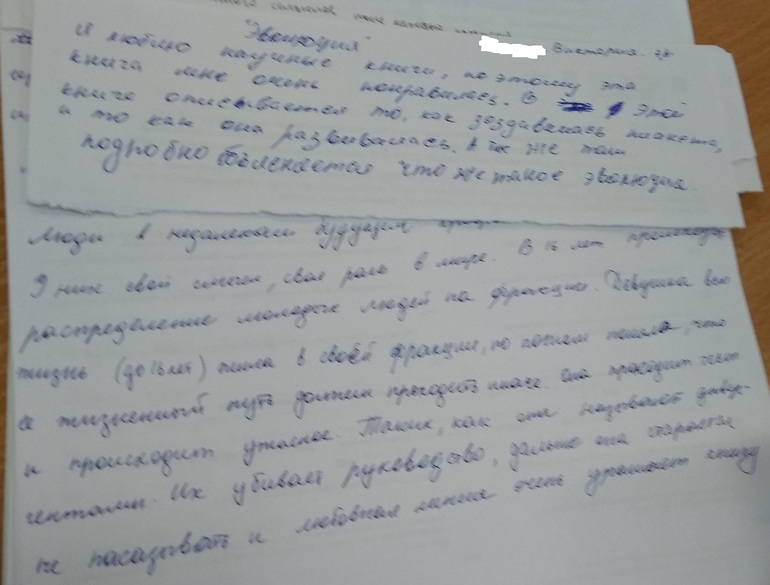 "Эволюция" Виктория.
Я люблю научные книги, по этому эта
книга мне очень понравилась. В этой
книге описывается то, как создавалась планета,
и то как она развивалась. А так же там
подробно объясняется что же такое эволюция.
Люди в недалеком будущем
У них свой смысл, своя роль в мире. В 16 лет происходит
распределение молодых людей на фракции. Девушка всю
жизнь (до 16 лет) жила в своей фракции, но потом поняла, что
ее жизненный путь должен проходить иначе. Она проходит тест
и происходит ужасное. Таких, как она называют дивер-
гентами. Их убивает руководство, дальше она старается
не показывать и любовная линия очень украшает книгу